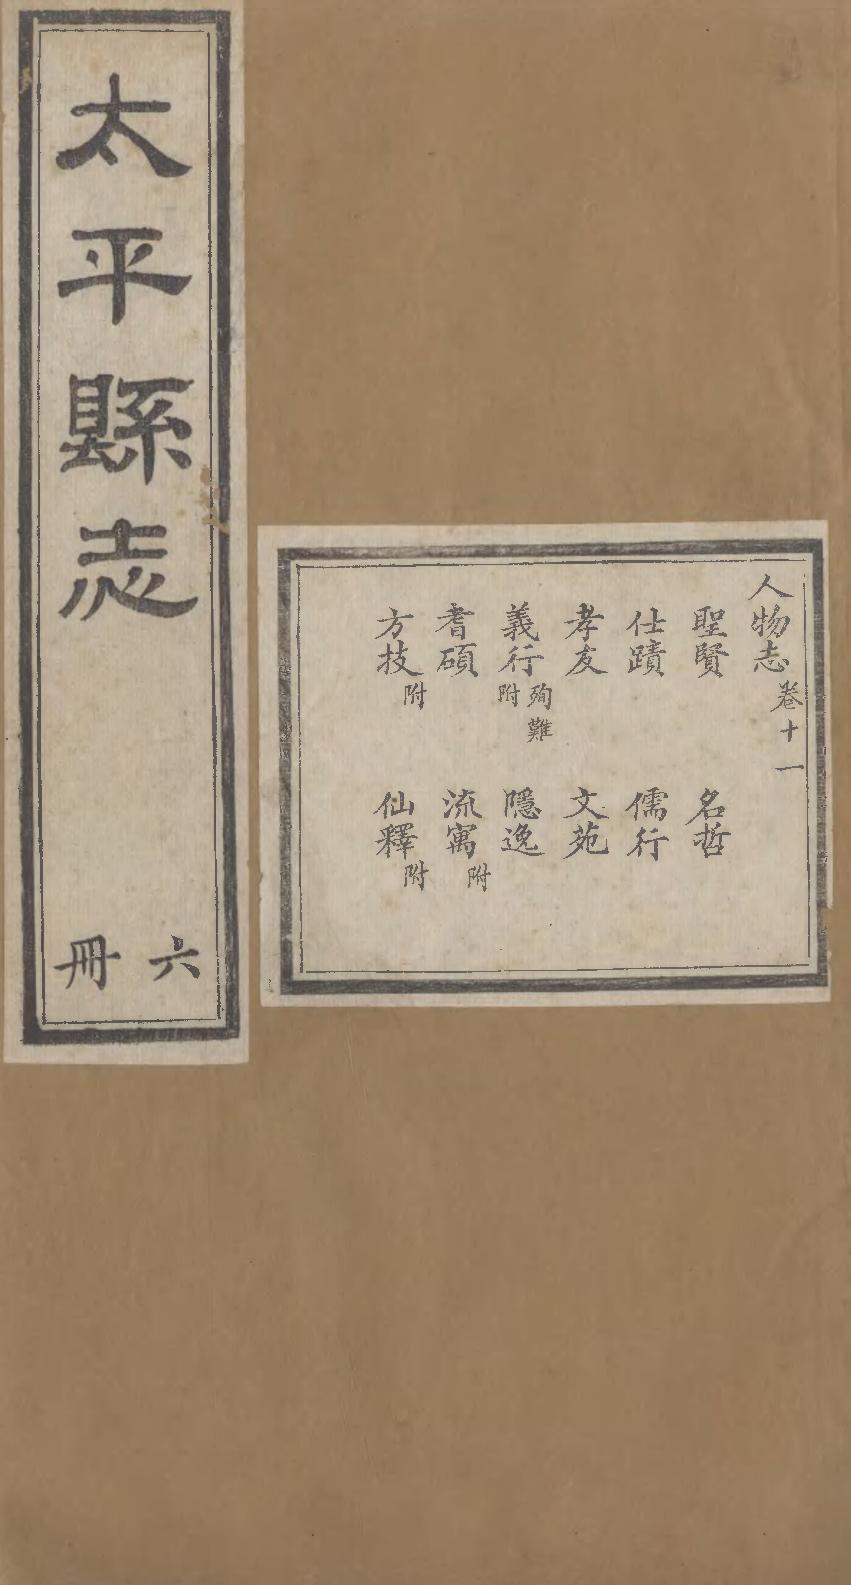 太平縣志
六冊
人物志 卷十一
聖賢 名哲
仕蹟 儒行
孝友 文苑
義行 殉難附 隱逸
耆碩 流寓附
方技附 仙釋附